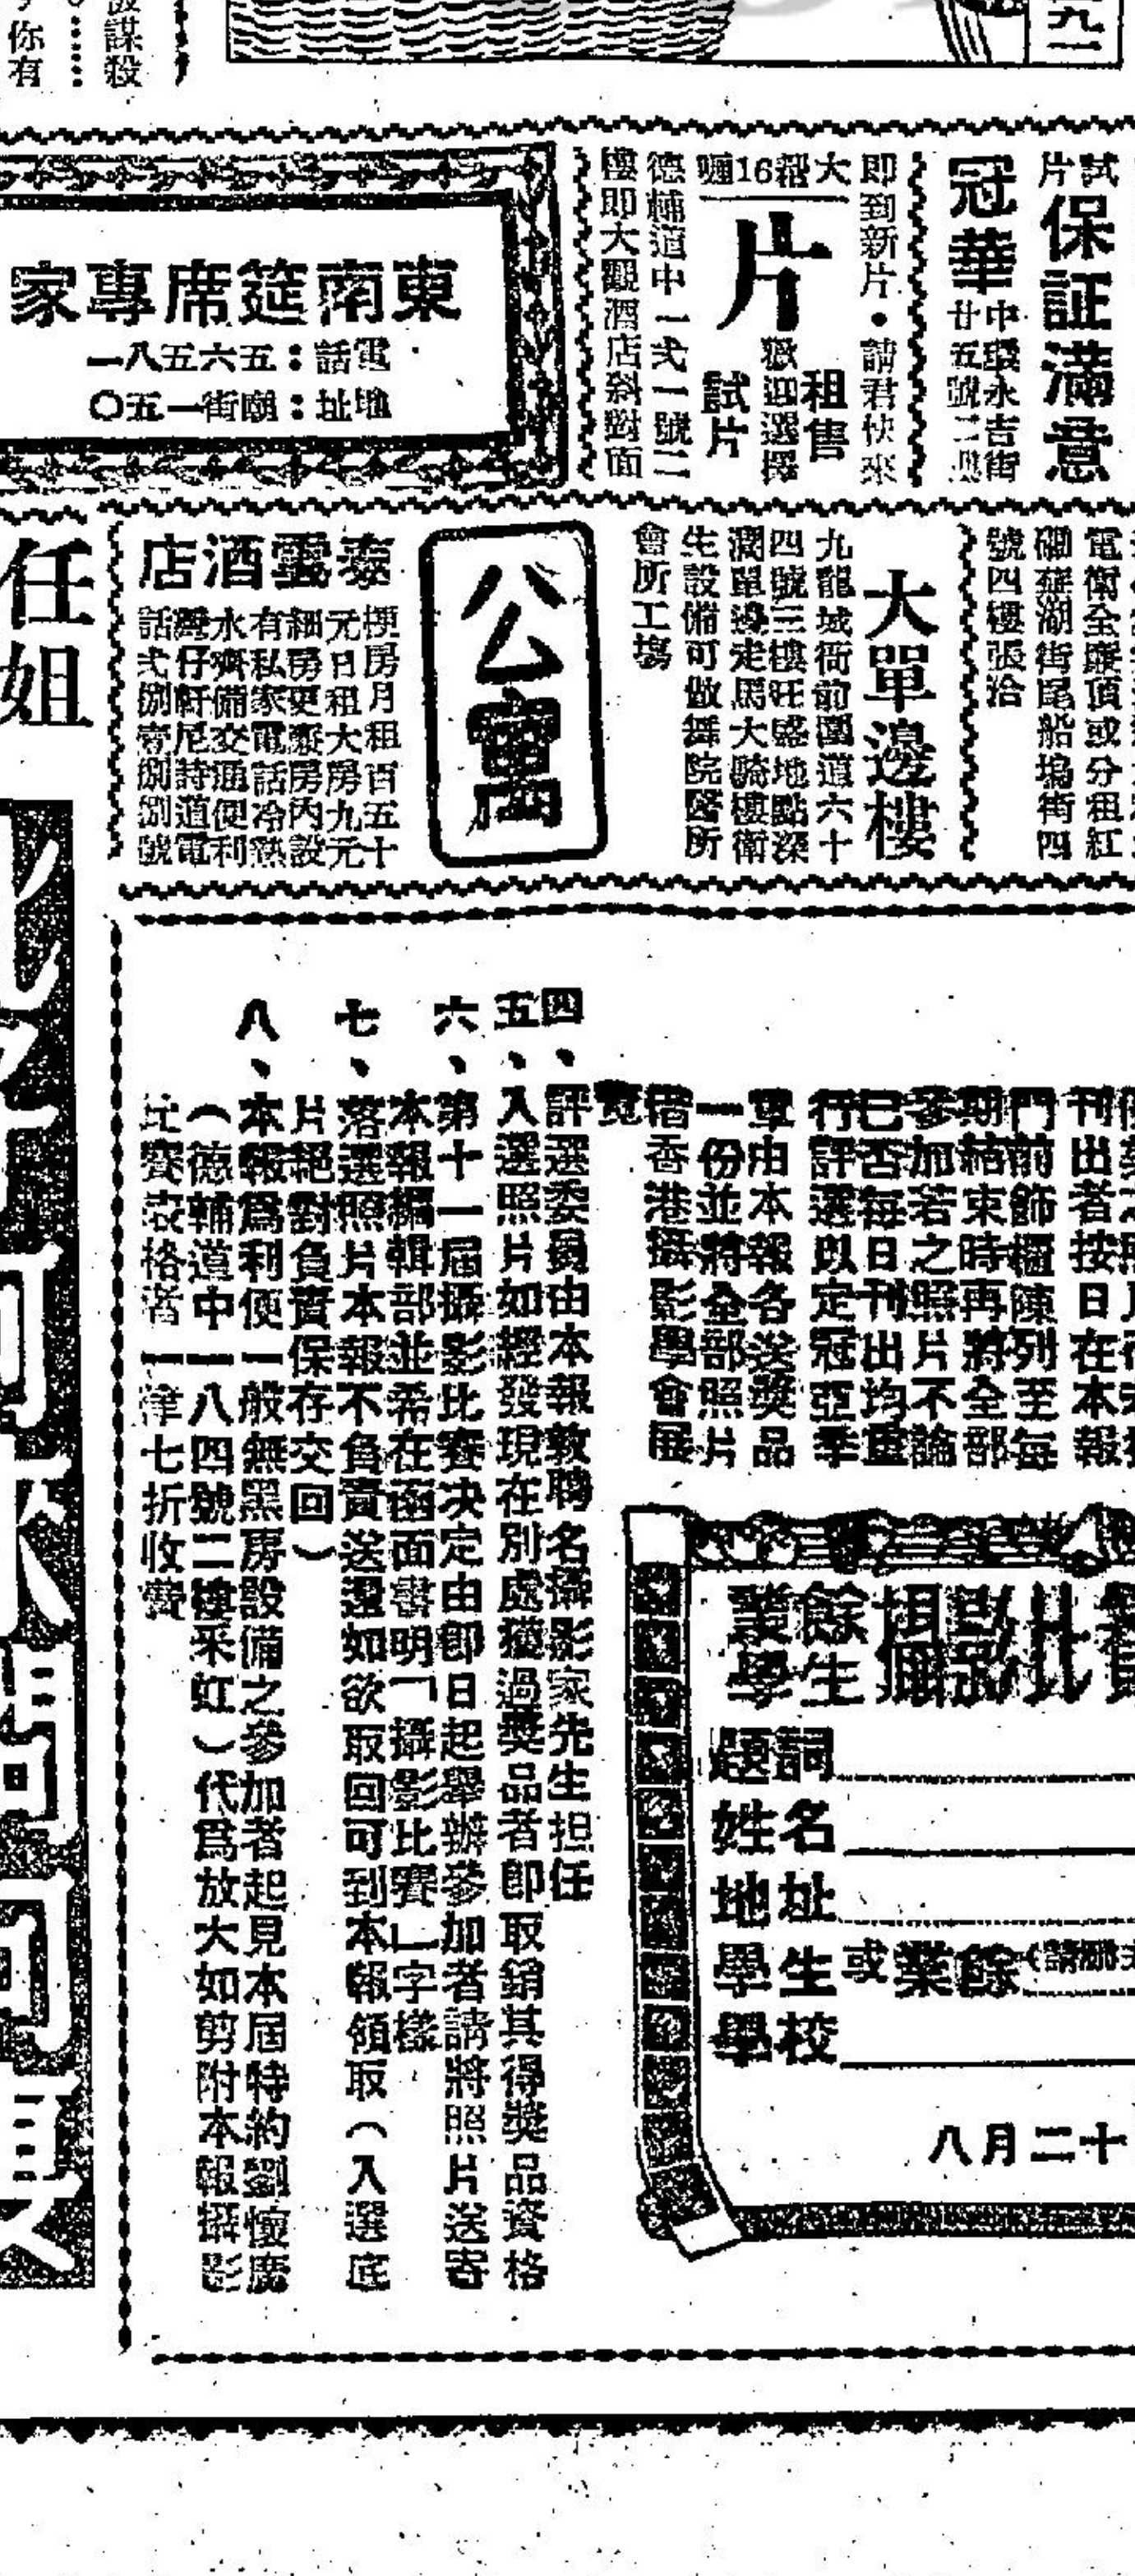 九一
被謀殺
你有
試片
保証滿意
冠華
中環永吉街
廿五號二樓
即到新片•請君快來
大批16糎
片
租售
歡迎選擇
試片
德輔道中一弍一號二
樓即大觀酒店斜對面
東南筵席專家
電話：五六五八一
地址：廟街一五〇
電衛全層頂或分租紅
磡蕪湖街尾船塢街四
號四樓張洽
大單邊樓
九龍城衙前圍道六十
四號三樓旺盛地點深
濶單邊走馬大騎樓衛
生設備可做舞院醫所
會所工塲
公寓
泰雲酒店
梗房月租百五十
元日租大房九元
細房更廉房內設
有私家電話冷熱
水齊備交通便利
灣仔軒尼詩道電
話弍捌壹捌捌號
任姐
刊出者按日在本報
門前飾櫃陳列至每
期結束時再將全部
參加若之照片不論
已否每日刊出均重
行評選以定冠亞季
軍由本報各送獎品
一份並將全部照片
借香港攝影學會展
覽
四、評選委員由本報敦聘名攝影家先生担任
五、入選照片如經發現在別處獲過獎品者即取銷其得獎品資格
六、第十一屆攝影比賽決定由即日起舉辦參加者請將照片送寄
本報編輯部並希在函面書明「攝影比賽」字樣
七、落選照片本報不負責送還如欲取回可到本報領取（入選底
片絕對負責保存交回）
八、本報爲利便一般無黑房設備之參加者起見本屆特約劉懷廣
（德輔道中一八四號二樓采虹）代爲放大如剪附本報攝影
比賽表格者一律七折收費
業餘學生攝影比賽
題詞
姓名
地址
學生或業餘（請刪去
學校
八月二十